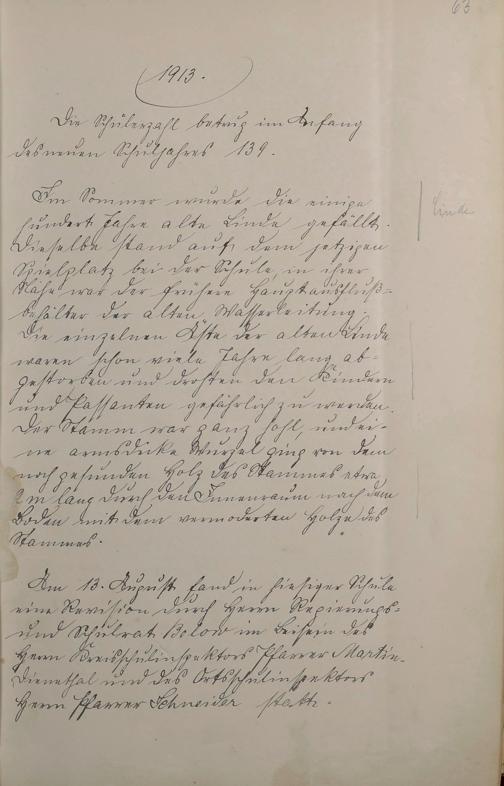 63
1913.
Die Schülerzahl betrug im Anfang
des neuen Schuljahres 139.
Im Sommer wurde die einige
hundert Jahre alte Linde gefällt.
Linde
Dieselbe stand auf dem jetzigen
Spielplatz bei der Schule, in ihrer
Nähe war der frühere Hauptausfluß-
behälter der alten Wasserleitung.
Die einzelnen Äste der alten Linde
waren schon viele Jahre lang ab-
gestorben und drohten den Kindern
und Passanten gefährlich zu werden.
Der Stamm war ganz hohl, und ei-
ne armsdicke Wurzel ging von dem
noch gesunden Holz des Stammes etwa
2 m lang durch den Innenraum nach dem
Boden mit dem vermoderten Holze des
Stammes.
Am 13. August fand in hiesiger Schule
eine Revision durch Herrn Regierungs-
und Schulrat Below im Beisein des
Herrn Kreisschulinspektors Pfarrer Martin-
Dienethal und des Ortsschulinspektors
Herrn Pfarrer Schneider statt.